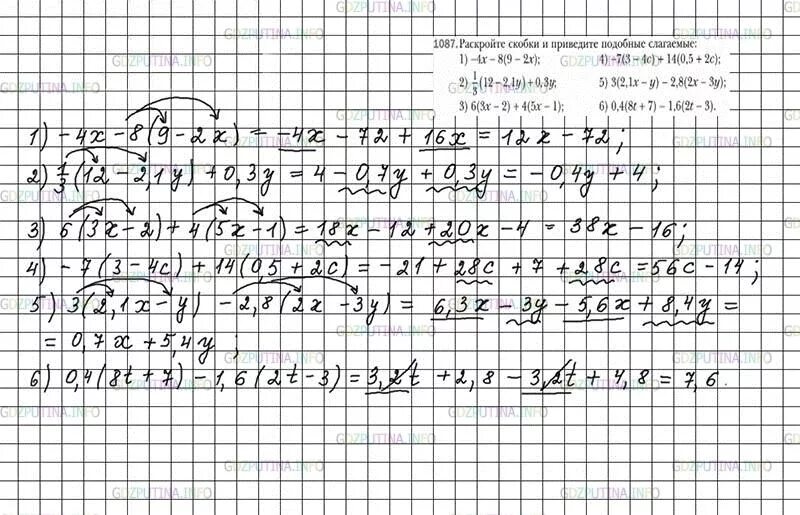 1087. Раскройте скобки и приведите подобные слагаемые:
1) –4x – 8(9 – 2x); 4) –7(3 – 4c) + 14(0,5 + 2c);
2) 1/3 (12 – 2,1y) + 0,3y; 5) 3(2,1x – y) – 2,8(2x – 3y);
3) 6(3x – 2) + 4(5x – 1); 6) 0,4(8t + 7) – 1,6(2t – 3).
1) – 4x – 8(9 – 2x) = –4x – 72 + 16x = 12x – 72;
2) 1/3 (12 – 2,1y) + 0,3y = 4 – 0,7y + 0,3y = –0,4y + 4;
3) 6(3x – 2) + 4(5x – 1) = 18x – 12 + 20x – 4 = 38x – 16;
4) – 7(3 – 4c) + 14(0,5 + 2c) = –21 + 28c + 7 + 28c = 56c – 14;
5) 3(2,1x – y) – 2,8(2x – 3y) = 6,3x – 3y – 5,6x + 8,4y =
= 0,7x + 5,4y;
6) 0,4(8t + 7) – 1,6(2t – 3) = 3,2t + 2,8 – 3,2t + 4,8 = 7,6.
GDZPUTINA.INFO